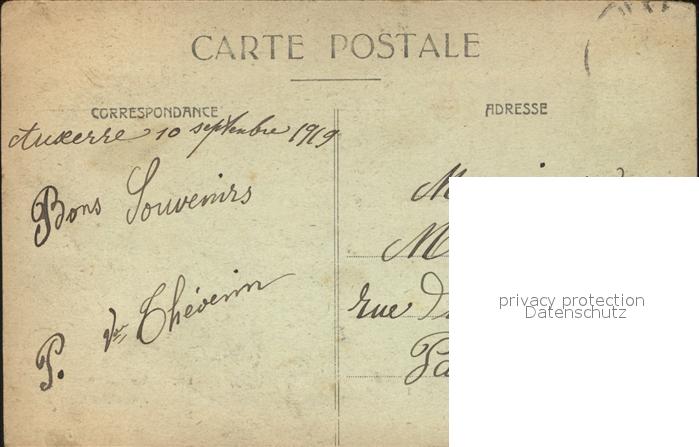 CARTE POSTALE
CORRESPONDANCE
Auxerre 10 septembre 1919
Bons Souvenirs
P. Vve Thévenin
ADRESSE
M
M
rue D
Pa
privacy protection
Datenschutz